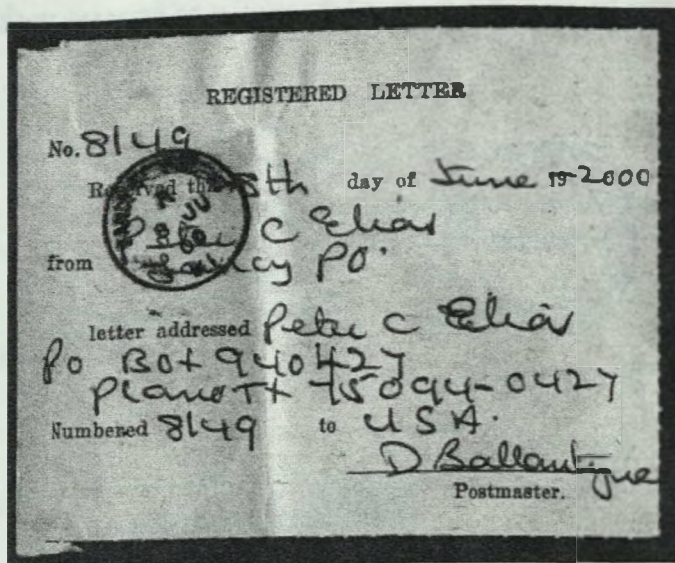 REGISTERED LETTER
No. 8149
Received the 8th day of June 19 2000
Peter C Elias
from PO.
letter addressed Peter C Elias
PO BOX 940427
Plano TX 75094-0427
Numbered 8149 to USA.
D Ballantyne
Postmaster.